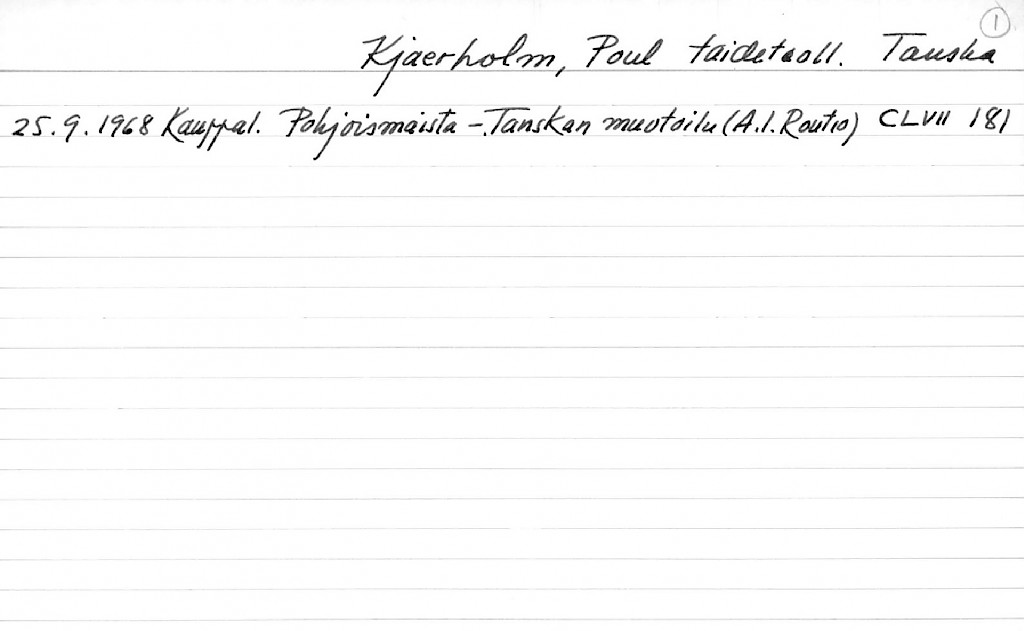 1
Kjaerholm, Poul taideteoll. Tanska
25.9.1968 Kauppal. Pohjoismaista - Tanskan muotoilu (A.I. Routio) CLVII 181